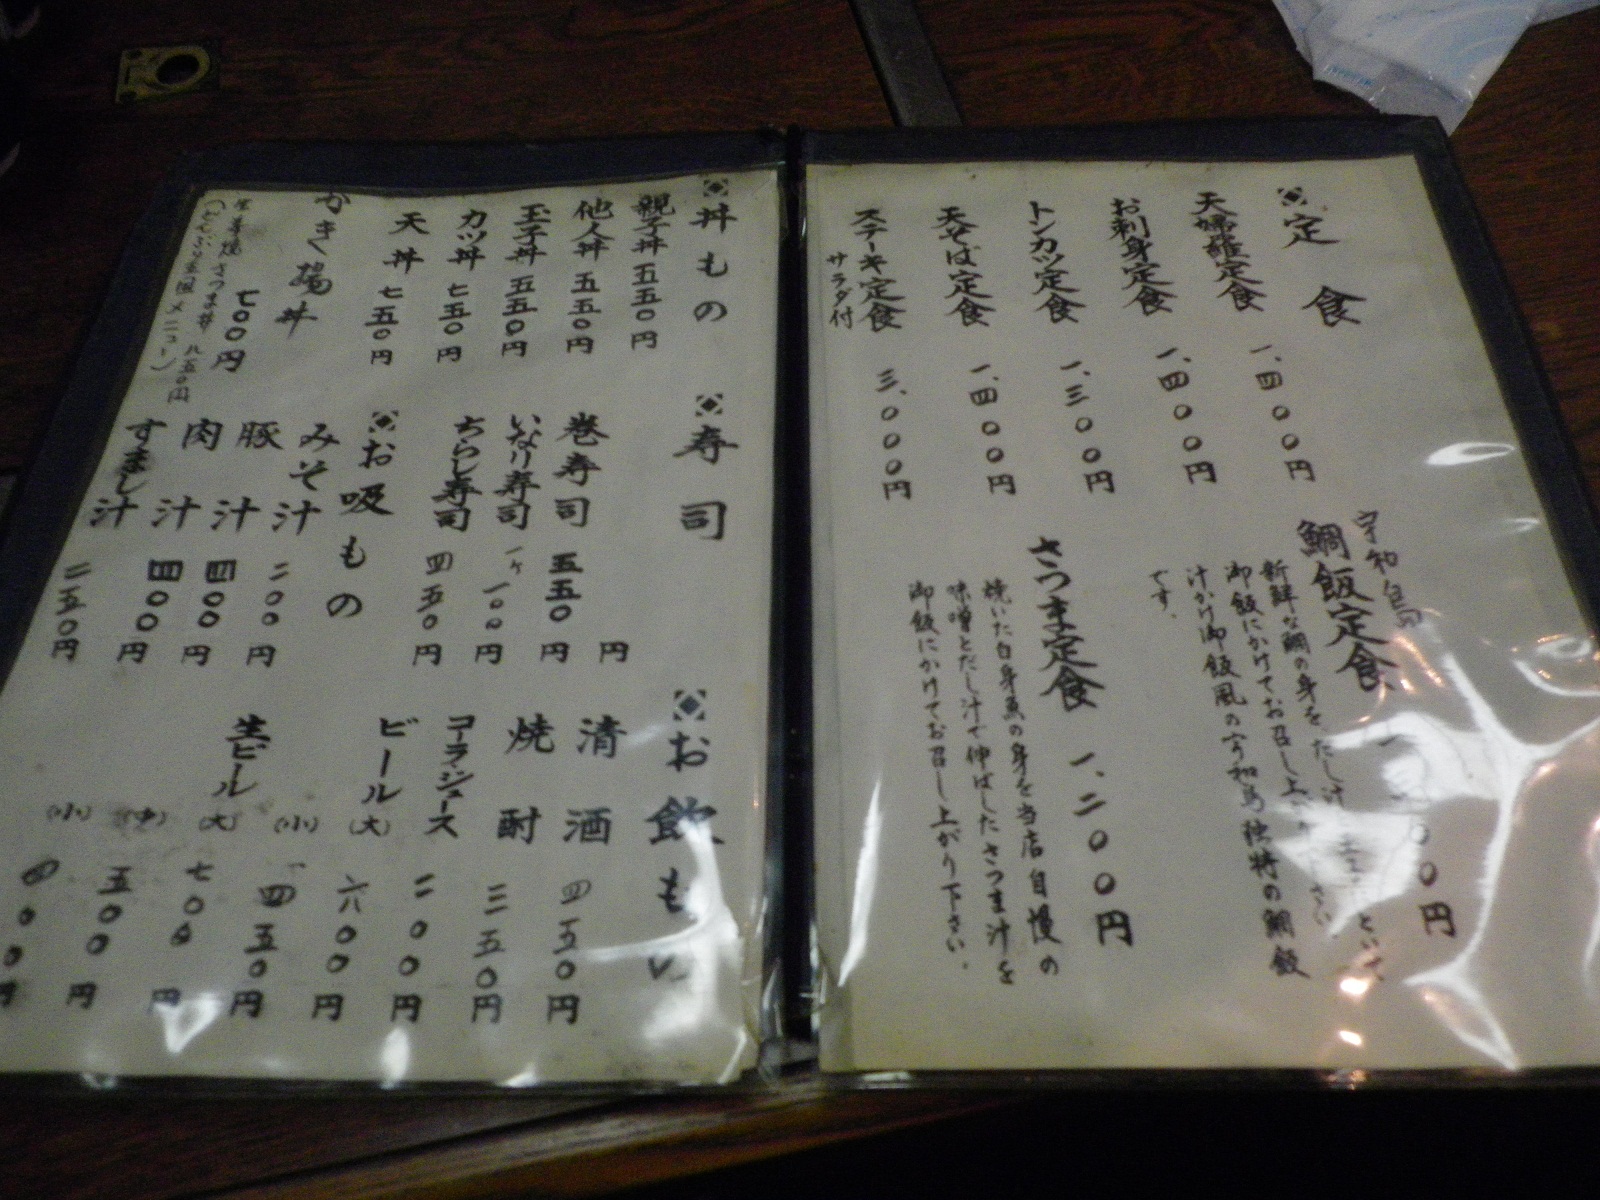 定食
天婦羅定食 一、四〇〇円
お刺身定食 一、四〇〇円
トンカツ定食 一、三〇〇円
天そば定食 一、四〇〇円
ステーキ定食 三、〇〇〇円
サラダ付
宇和島
鯛飯定食 〇円
新鮮な鯛の身をだし汁 といて、
御飯にかけてお召し上 さい
汁かけ御飯風の宇和島独特の鯛飯
です。
さつま定食 一、二〇〇円
焼いた白身魚の身を当店自慢の
味噌とだし汁で伸ばしたさつま汁を
御飯にかけてお召し上がり下さい。
丼もの
親子丼 五五〇円
他人丼 五五〇円
玉子丼 五五〇円
カツ丼 七五〇円
天丼 七五〇円
かき揚丼
七〇〇円
さつま丼 八五〇円
メニュー）
寿司
円
巻寿司 五五〇円
いなり寿司 一ヶ 一〇〇円
ちらし寿司 四五〇円
お吸もの
みそ汁 二〇〇円
豚汁 四〇〇円
肉汁 四〇〇円
すまし汁 二五〇円
お飲もの
清酒 四五〇円
焼酎 三五〇円
コーラ・ジュース 二〇〇円
ビール （大） 六〇〇円
（小） 四五〇円
生ビール （大） 七〇〇円
（中） 五〇〇円
（小） 四〇〇円